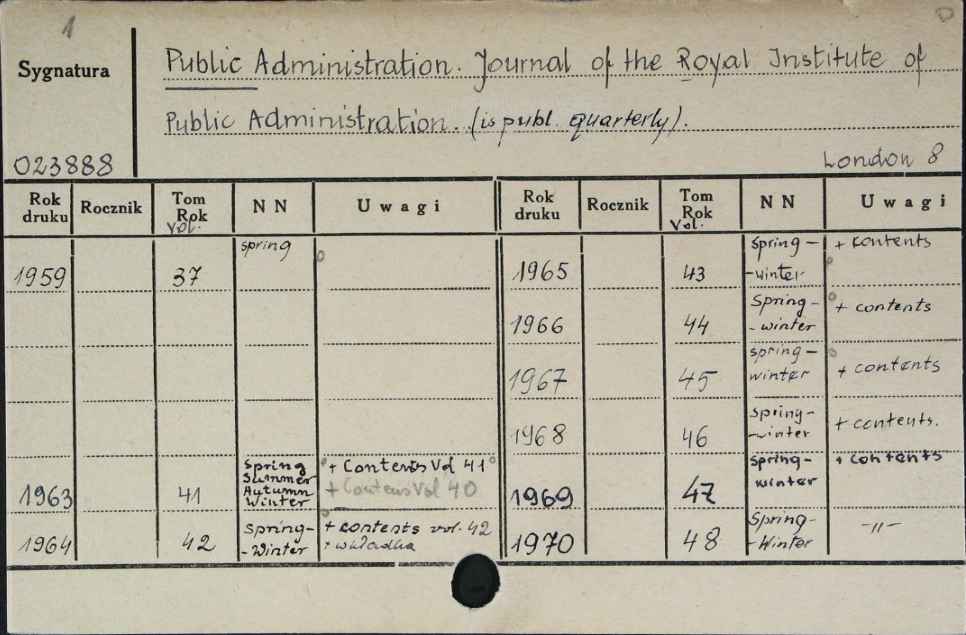 1
Sygnatura
Public Administration. Journal of the Royal Institute of
Public Administration. (is publ. quarterly).
023888
London 8
Rok druku Rocznik Tom Rok Vol. NN Uwagi Rok druku Rocznik Tom Rok Vol. NN Uwagi
1959 37 spring
1963 41 Spring Summer Autumn Winter + Contents Vol 41
+ Contens Vol 40
1964 42 Spring- -Winter + contents vol. 42
+ wkładka
1965 43 Spring- -winter + contents
1966 44 Spring- -winter + contents
1967 45 spring- winter + contents
1968 46 spring- -winter + contents.
1969 47 spring- winter + contents
1970 48 Spring- -Winter -"-